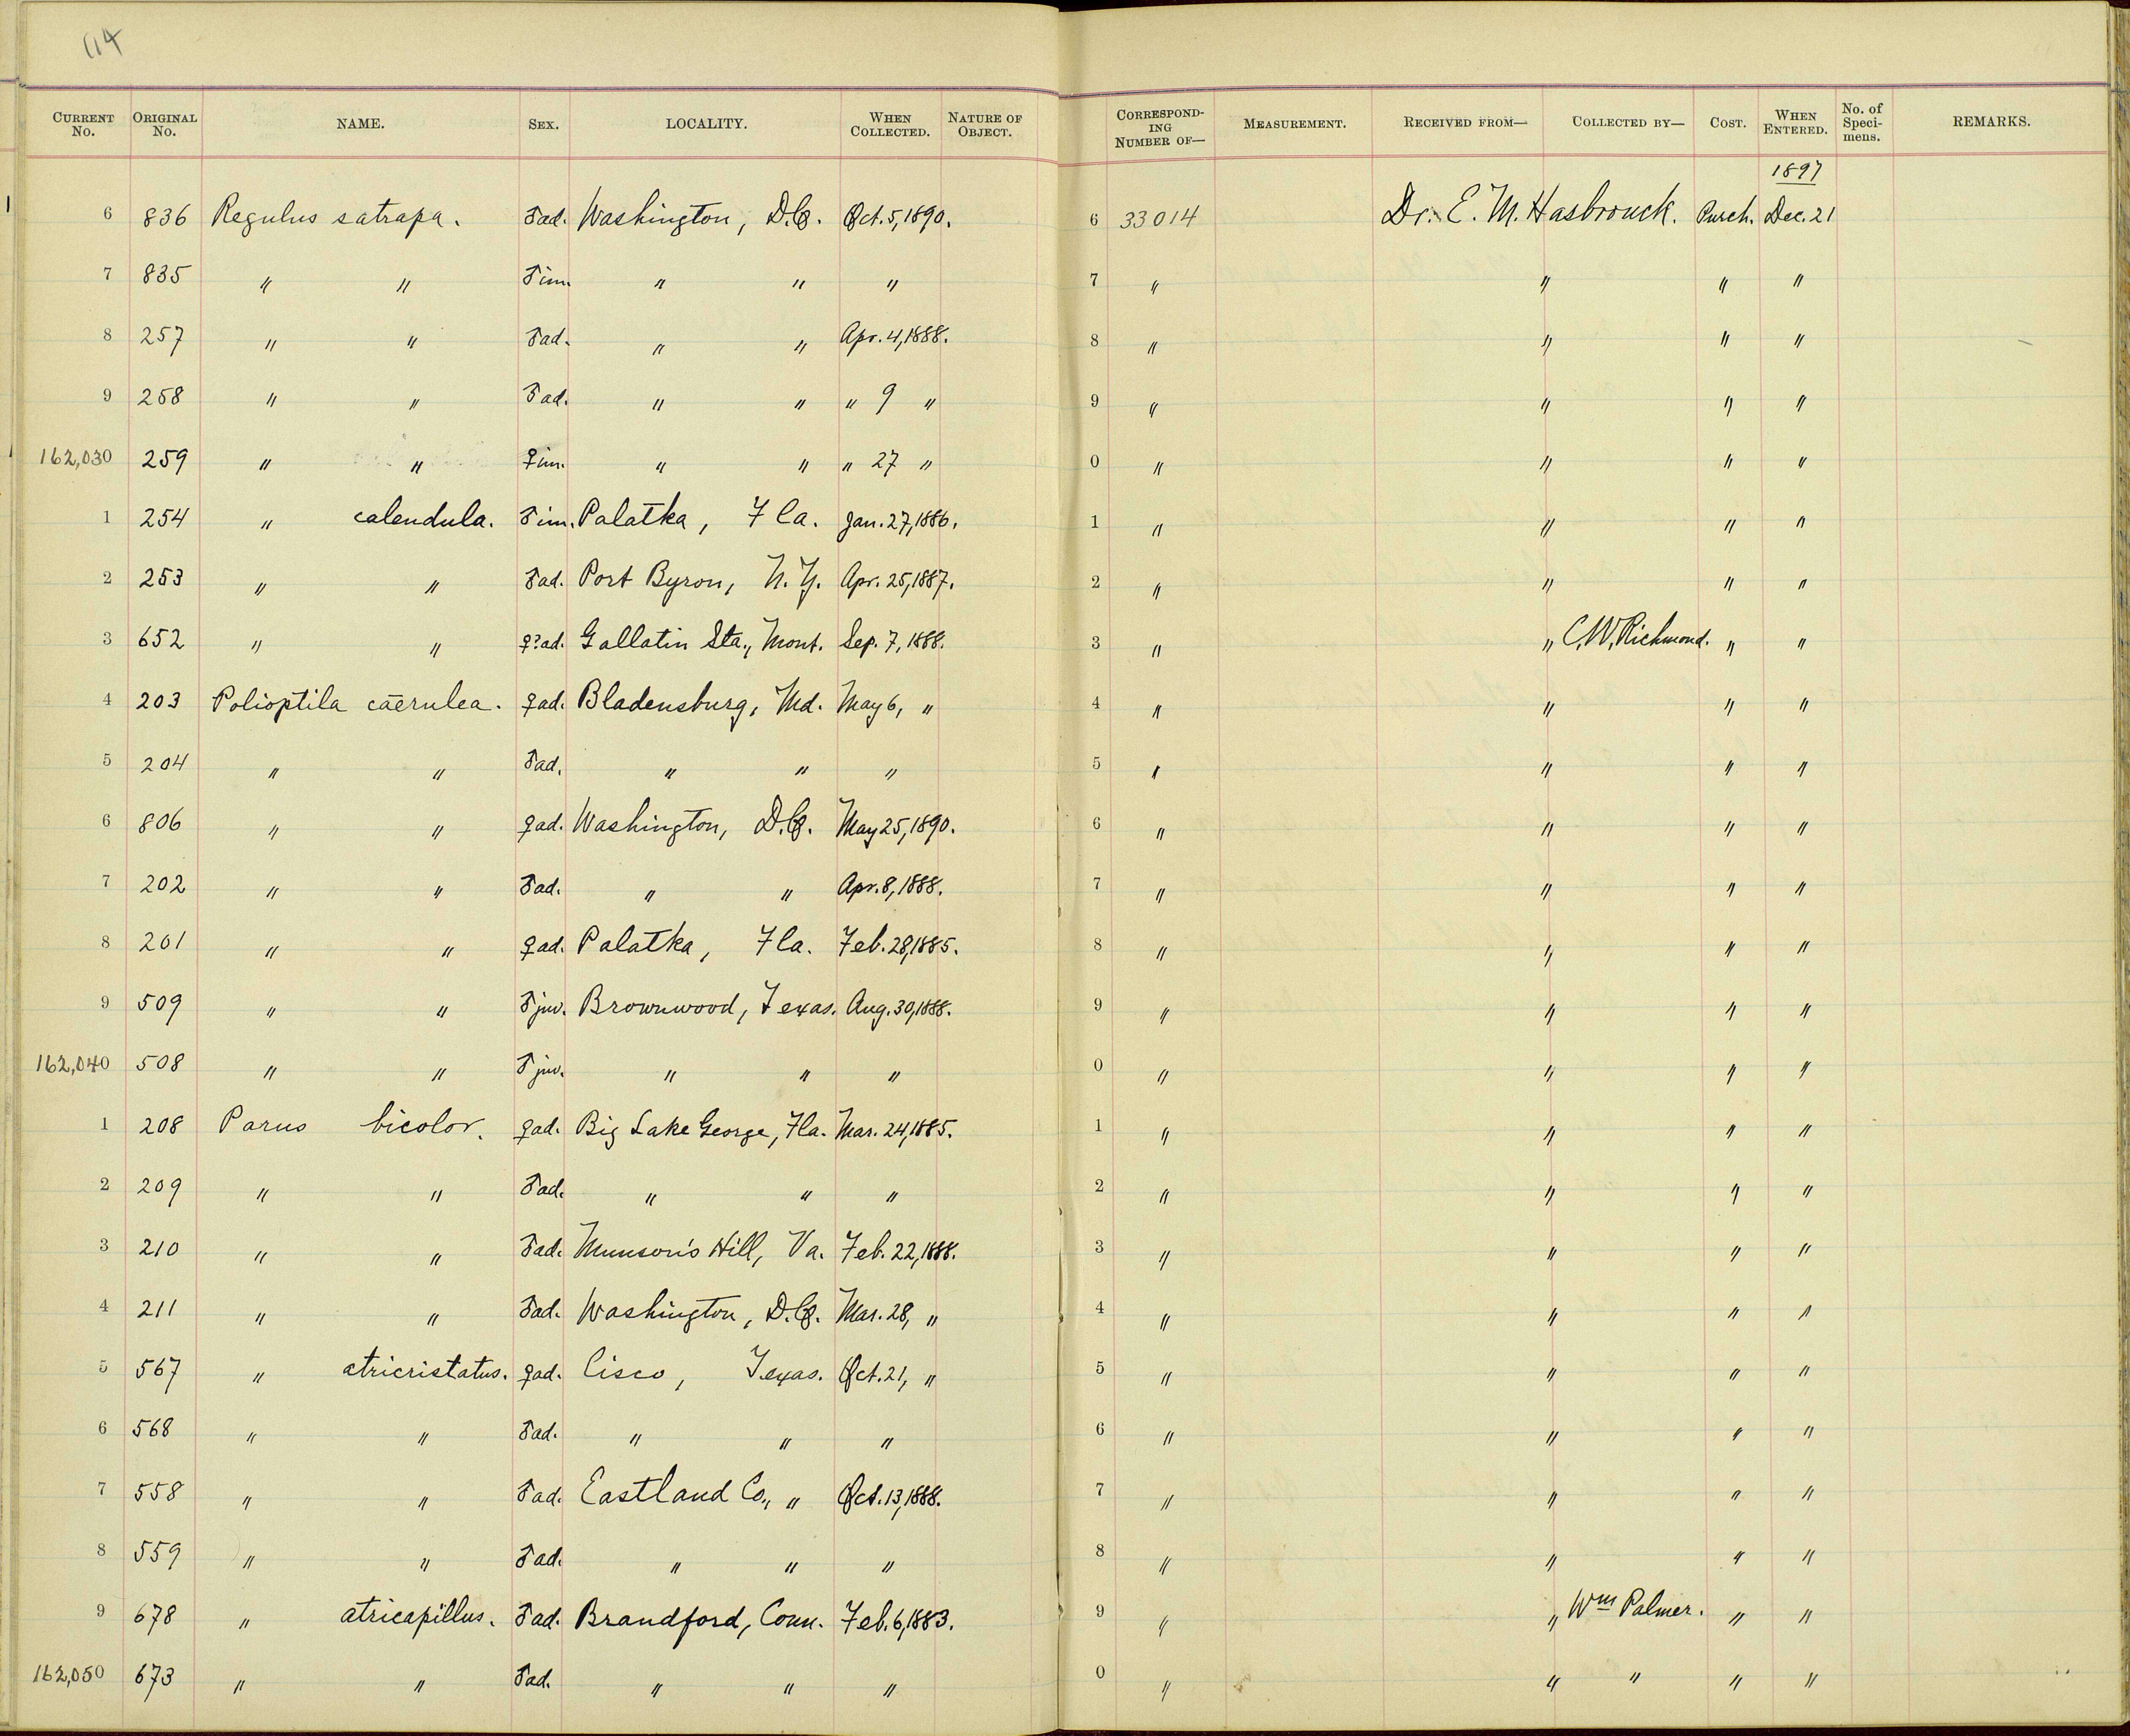 114
CURRENT No. ORIGINAL No. NAME. SEX. LOCALITY. WHEN COLLECTED. NATURE OF OBJECT. CORRESPONDING NUMBER OF— MEASUREMENT. RECEIVED FROM— COLLECTED BY— COST. WHEN ENTERED. No. of Specimens. REMARKS.
1897
6 836 Regulus satrapa. ♂ad. Washington, D.C. Oct. 5, 1890. 6 33014 Dr. E. M. Hasbrouck. Purch. Dec. 21
7 835 " " ♂im. " " " 7 " " " "
8 257 " " ♂ad. " " Apr. 4, 1888. 8 " " " "
9 258 " " ♂ad. " " " 9 " 9 " " " "
162,030 259 " " ♀im. " " " 27 " 0 " " " "
1 254 " calendula. ♂im. Palatka, Fla. Jan. 27, 1886. 1 " " " "
2 253 " " ♂ad. Port Byron, N.Y. Apr. 25, 1887. 2 " " " "
3 652 " " ♀?ad. Gallatin Sta., Mont. Sep. 7, 1888. 3 " " C.W. Richmond. " "
4 203 Polioptila caerulea. ♀ad. Bladensburg, Md. May 6, " 4 " " " "
5 204 " " ♂ad. " " " 5 " " " "
6 806 " " ♀ad. Washington, D.C. May 25, 1890. 6 " " " "
7 202 " " ♂ad. " " Apr. 8, 1888. 7 " " " "
8 201 " " ♀ad. Palatka, Fla. Feb. 28, 1885. 8 " " " "
9 509 " " ♂juv. Brownwood, Texas. Aug. 30, 1888. 9 " " " "
162,040 508 " " ♂juv. " " " 0 " " " "
1 208 Parus bicolor. ♀ad. Big Lake George, Fla. Mar. 24, 1885. 1 " " " "
2 209 " " ♂ad. " " " 2 " " " "
3 210 " " ♂ad. Munson's Hill, Va. Feb. 22, 1888. 3 " " " "
4 211 " " ♂ad. Washington, D.C. Mar. 28, " 4 " " " "
5 567 " atricristatus. ♀ad. Cisco, Texas. Oct. 21, " 5 " " " "
6 568 " " ♂ad. " " " 6 " " " "
7 558 " " ♂ad. Eastland Co., " Oct. 13, 1888. 7 " " " "
8 559 " " ♂ad. " " " 8 " " " "
9 678 " atricapillus. ♂ad. Brandford, Conn. Feb. 6, 1883. 9 " " Wm Palmer. " "
162,050 673 " " ♂ad. " " " 0 " " " " "